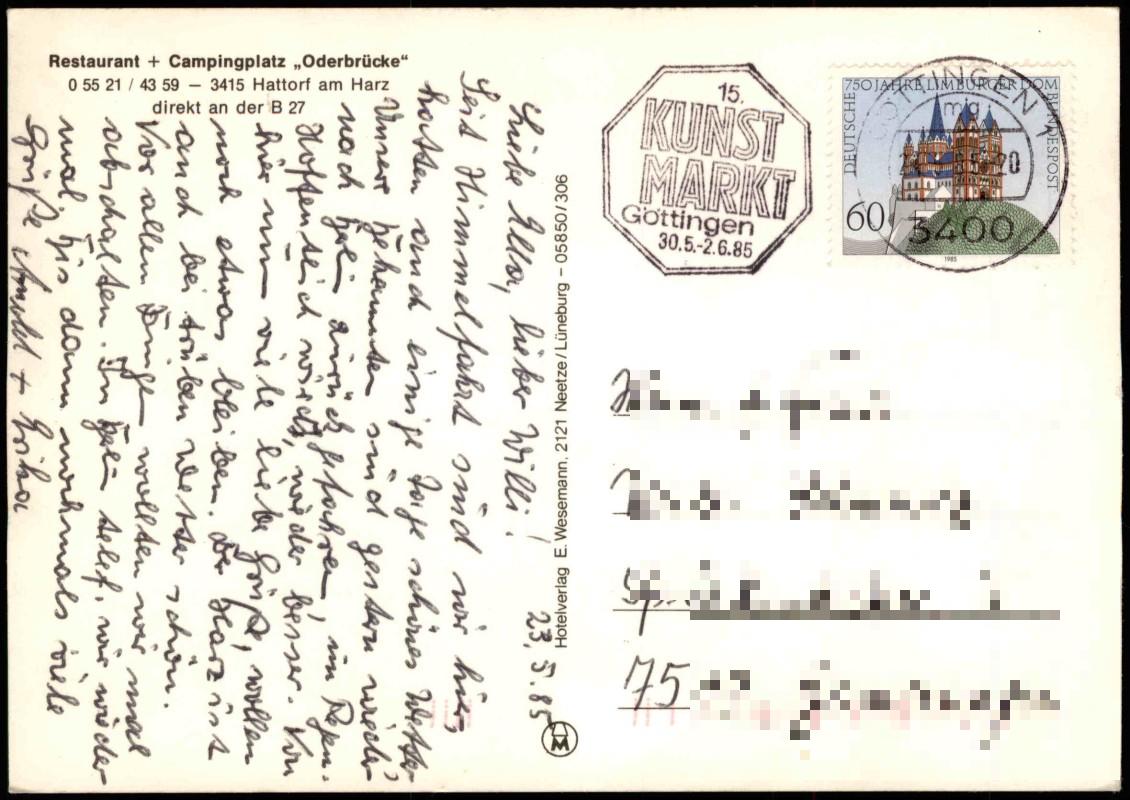 Restaurant + Campingplatz „Oderbrücke“
0 55 21 / 43 59 — 3415 Hattorf am Harz
direkt an der B 27
23.5.85
Liebe Ella, lieber Willi!
Seit Himmelfahrt sind wir hier,
hatten auch einige Tage schönes Wetter
Unsere Bekannten sind gestern wieder
nach zurückgefahren, im Regen.
Hoffentlich wird's wieder besser. Von
hier nun viele liebe Grüße, wollen
noch etwas bleiben. Der Harz ist
auch bei trüben Wetter schön.
Vor allen Dingen wollten wir mal
abschalten. In telef. wir wieder
mal, bis dann nochmals viele
Grüße + Erika
Hotelverlag E. Wesemann, 2121 Neetze/Lüneburg – 05850/306
M
15.
KUNST
MARKT
Göttingen
30.5.-2.6.85
750 JAHRE LIMBURGER DOM
DEUTSCHE
BUNDESPOST
60
1985
GÖTTINGEN 1
mg
20
3400
75